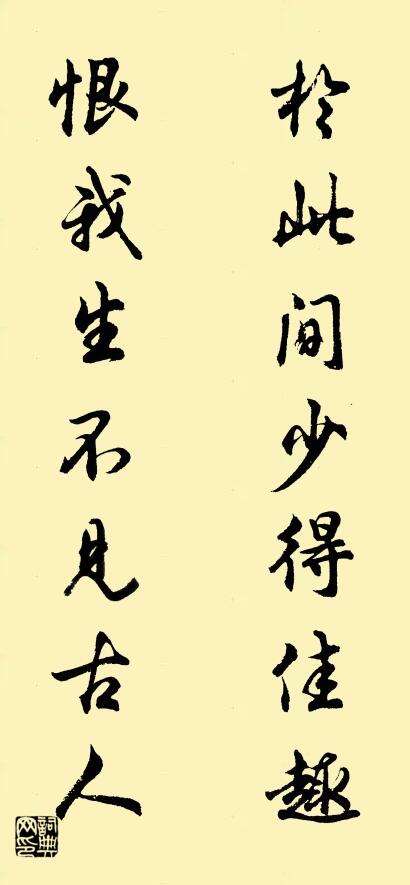 於此間少得佳趣
恨我生不見古人
詞典网印